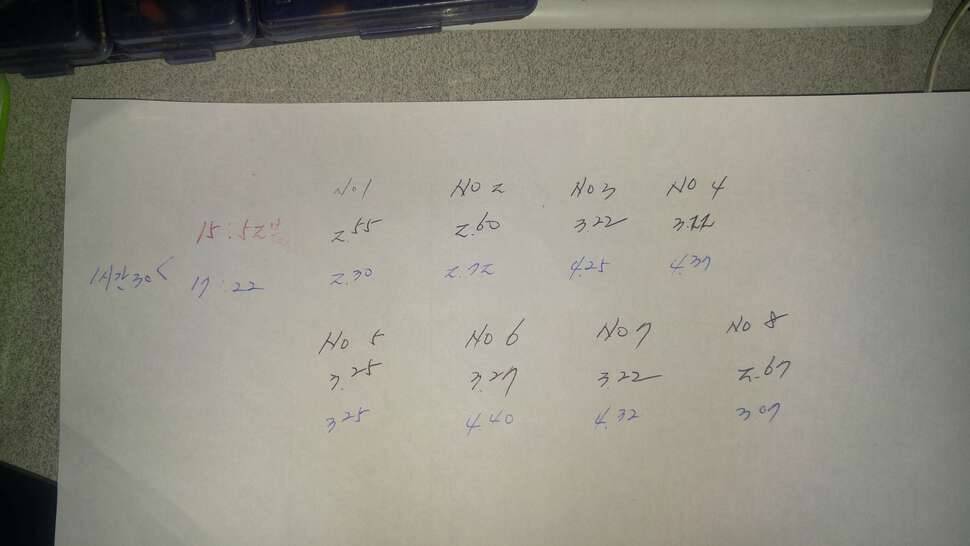 No1 No2 No3 No4
15:52분 2.55 2.60 3.22 3.22
1시간30< 17:22 2.30 2.72 4.25 4.37
No 5 No 6 No 7 No 8
3.25 3.27 3.22 2.67
3.25 4.40 4.32 3.07